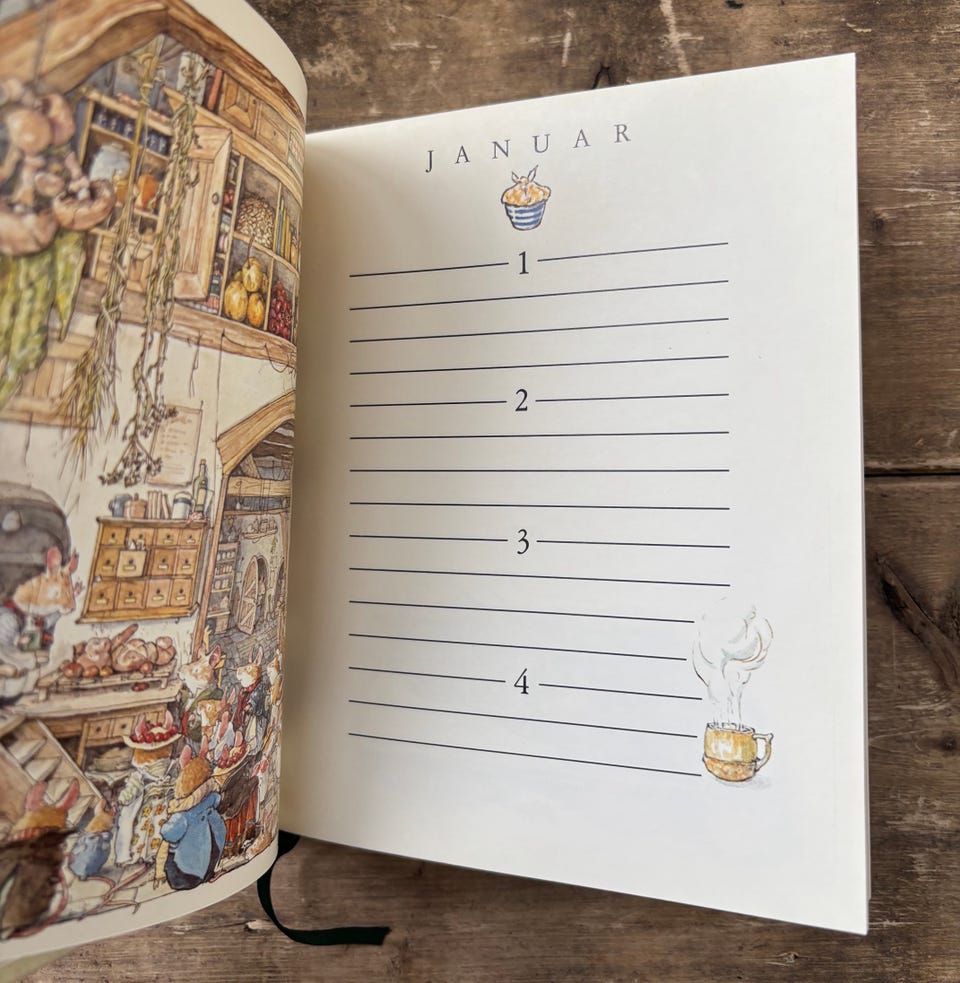 JANUAR
1
2
3
4